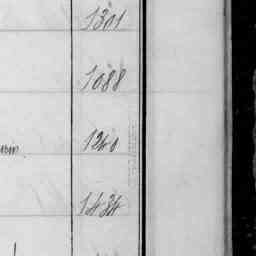 1301
1088
1240
1484